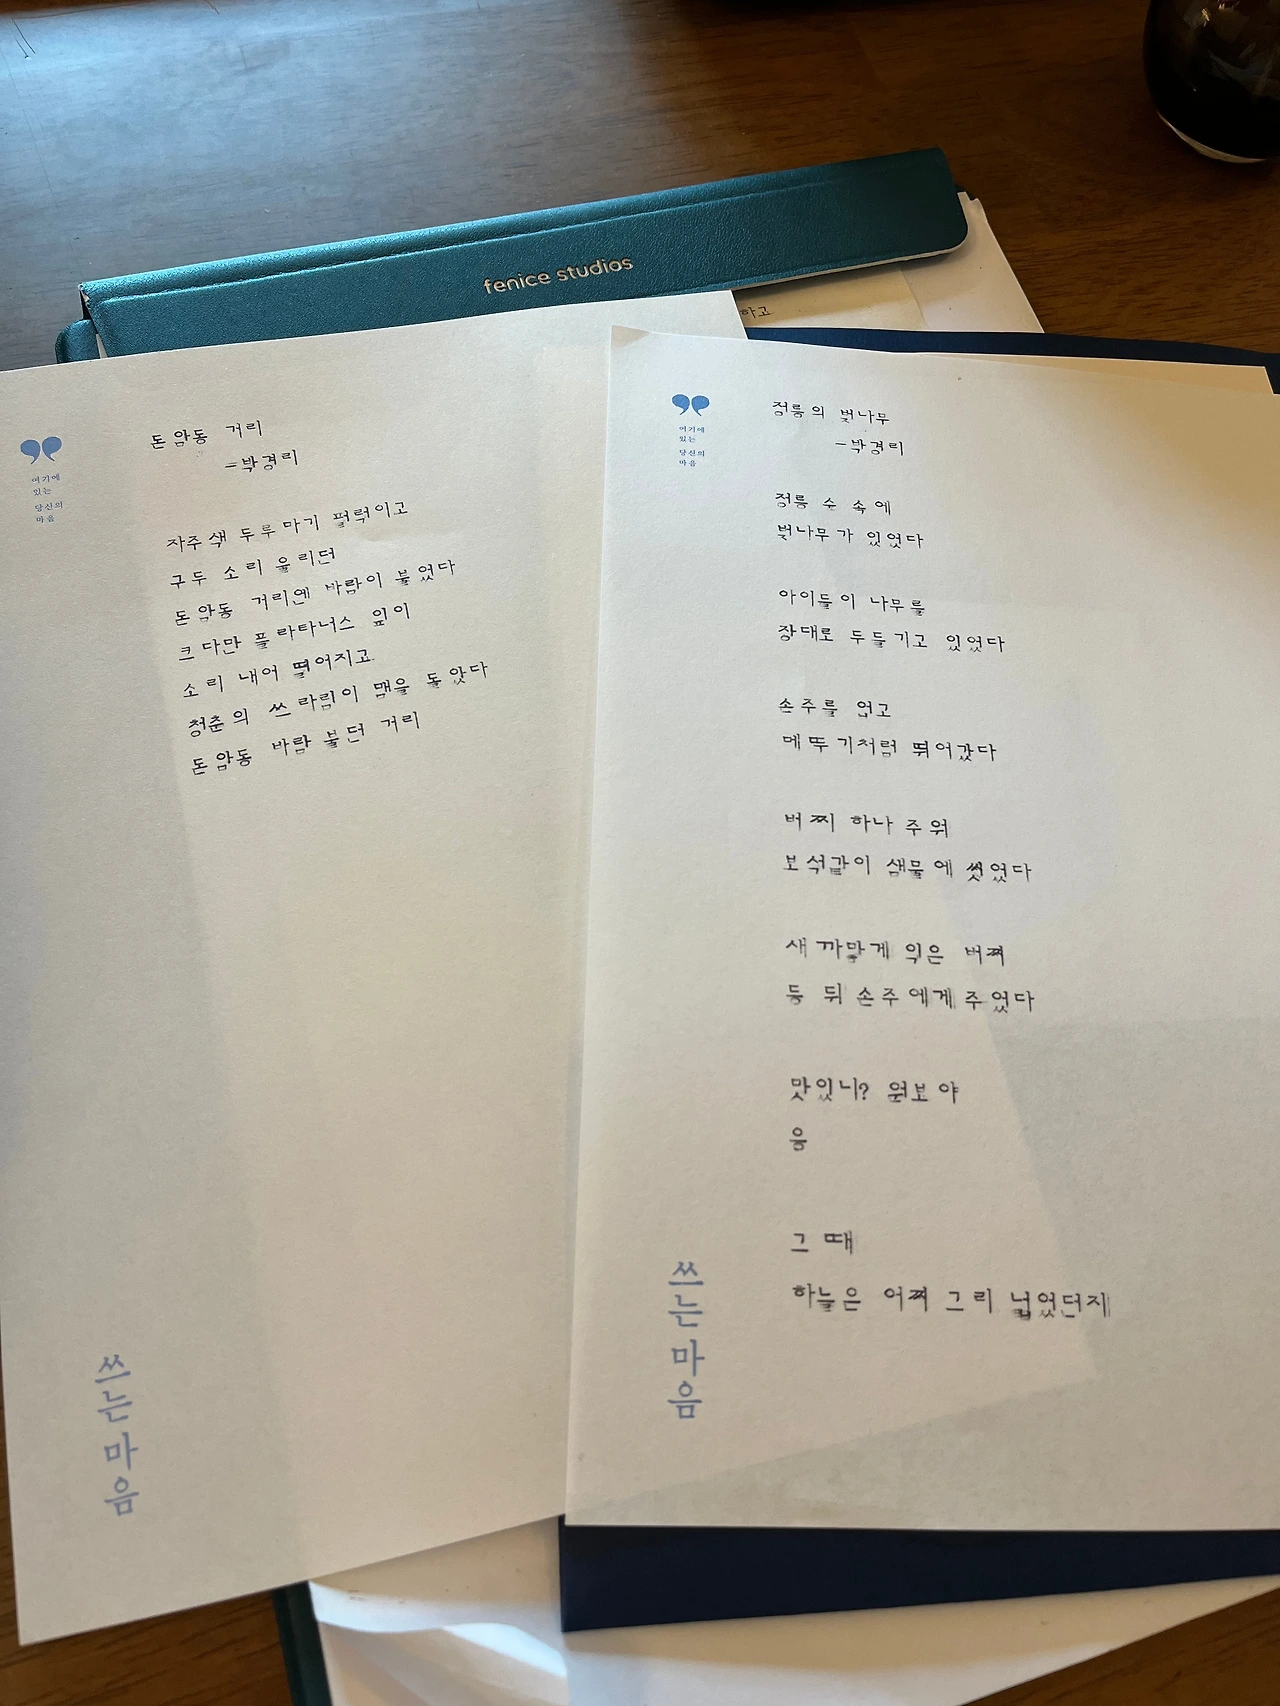 fenice studios
하고
여기에
있는
당신의
마음
돈암동 거리
-박경리
자주색 두루마기 펄럭이고
구두 소리 울리던
돈암동 거리엔 바람이 불었다
크다만 플라타너스 잎이
소리 내어 떨어지고
청춘의 쓰라림이 맴을 돌았다
돈암동 바람 불던 거리
쓰는마음
여기에
있는
당신의
마음
정릉의 벚나무
-박경리
정릉 숲 속에
벚나무가 있었다
아이들이 나무를
장대로 두들기고 있었다
손주를 업고
메뚜기처럼 뛰어갔다
버찌 하나 주워
보석같이 샘물에 씻었다
새까맣게 익은 버찌
등 뒤 손주에게 주었다
맛있니? 원보야
응
그 때
하늘은 어찌 그리 넓었던지
쓰는마음